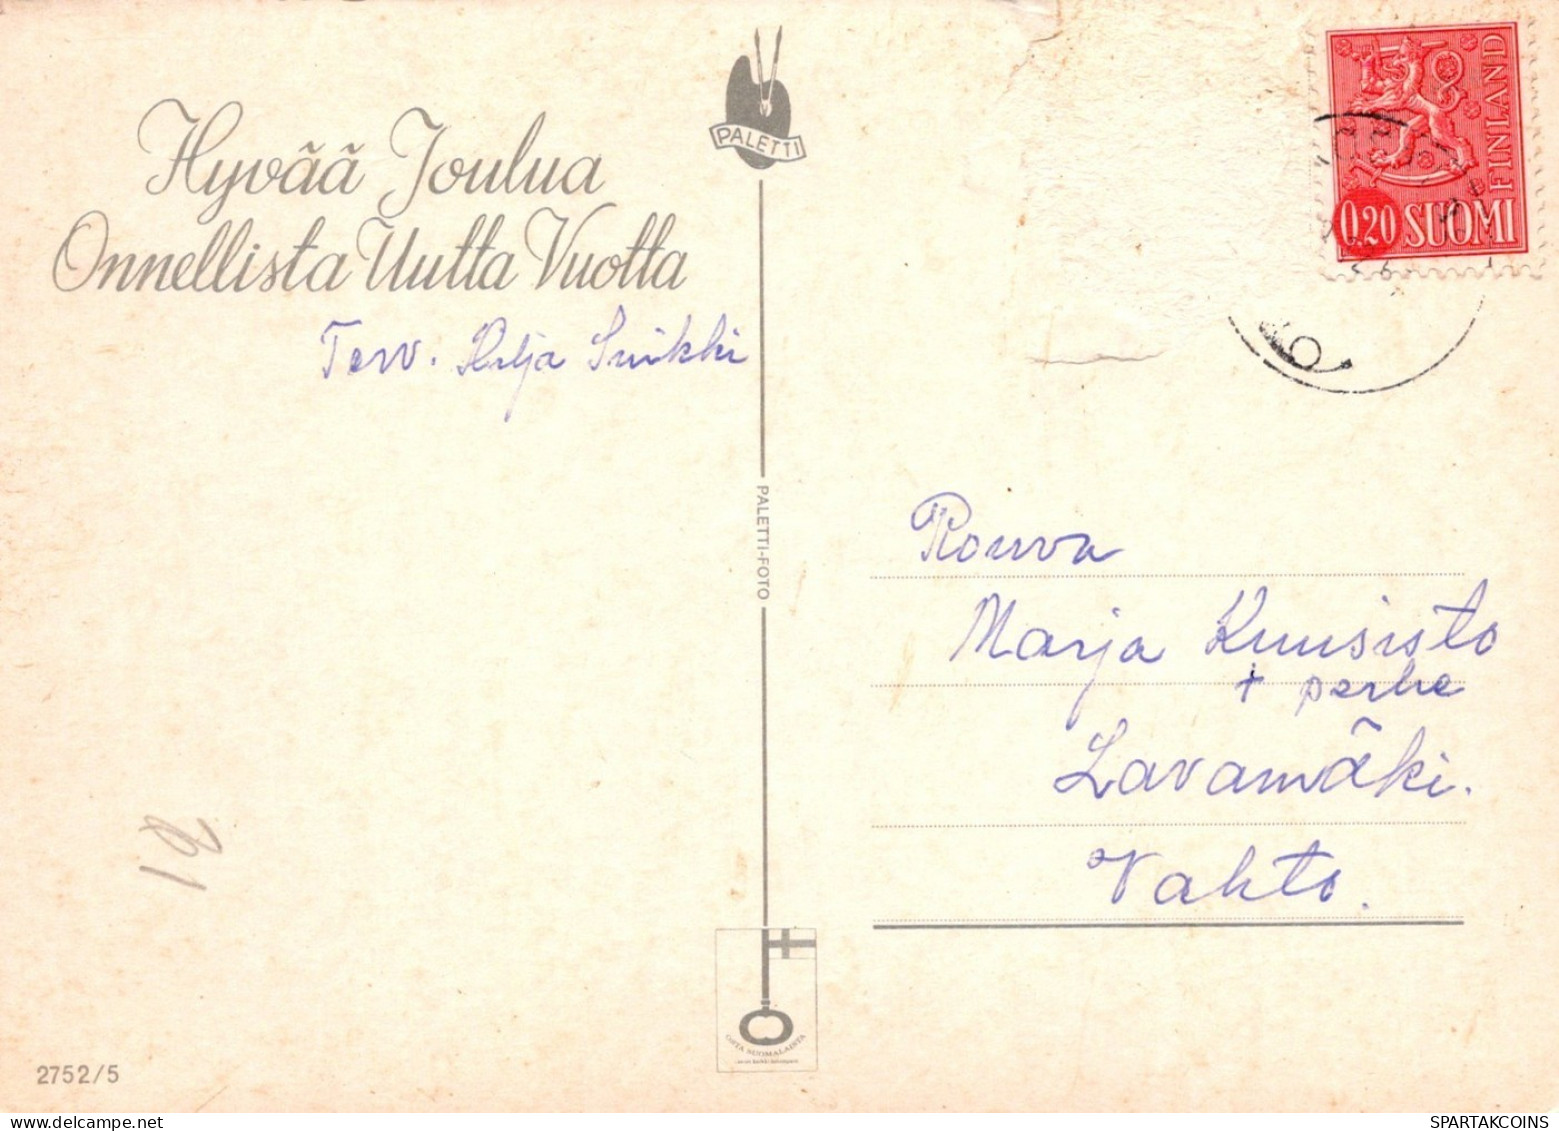 Hyvää Joulua
Onnellista Uutta Vuotta
Terv. Hilja Suikki
PALETTI
PALETTI-FOTO
FINLAND
0,20 SUOMI
Rouva
Marja Kuusisto
+ perhe
Lavamäki.
Vahto.
OSTA SUOMALAISTA
2752/5
www.delcampe.net
SPARTAKCOINS